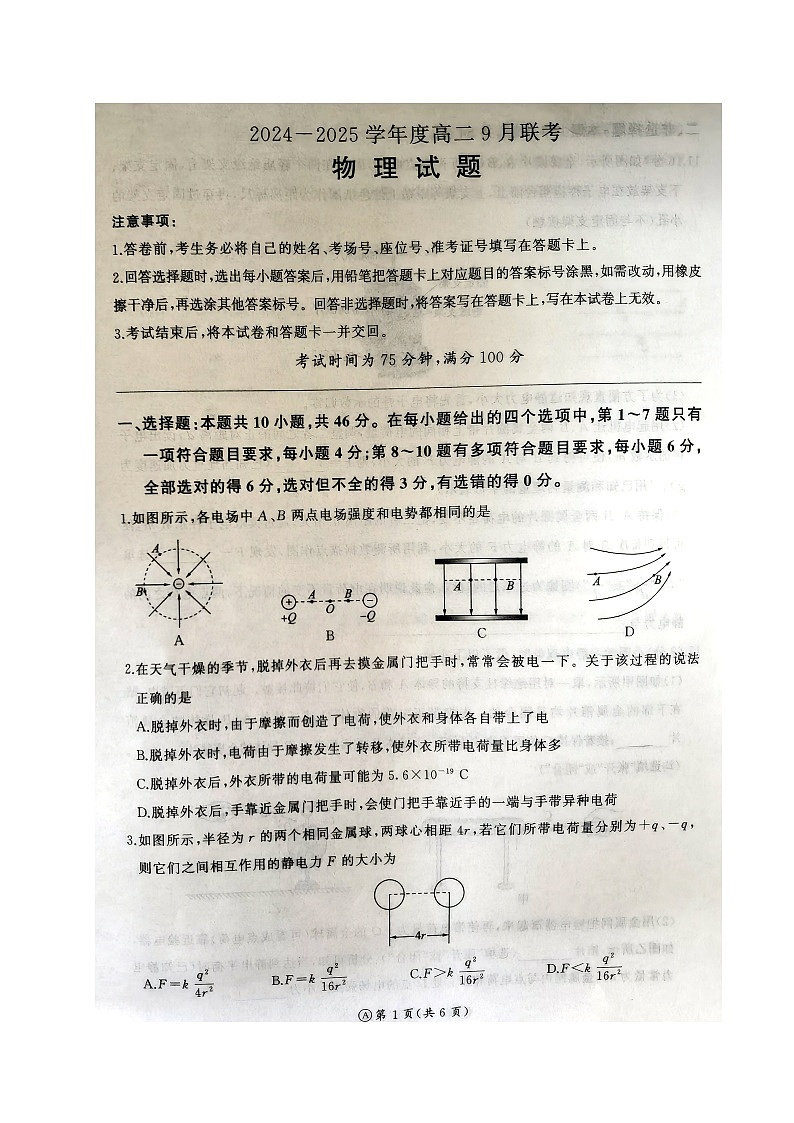 2024－2025学年度高二9月联考
物理试题
注意事项：
1.答卷前，考生务必将自己的姓名、考场号、座位号、准考证号填写在答题卡上。
2.回答选择题时，选出每小题答案后，用铅笔把答题卡上对应题目的答案标号涂黑，如需改动，用橡皮
擦干净后，再选涂其他答案标号。回答非选择题时，将答案写在答题卡上，写在本试卷上无效。
3.考试结束后，将本试卷和答题卡一并交回。
考试时间为75分钟，满分100分
一、选择题：本题共10小题，共46分。在每小题给出的四个选项中，第1～7题只有
一项符合题目要求，每小题4分；第8～10题有多项符合题目要求，每小题6分，
全部选对的得6分，选对但不全的得3分，有选错的得0分。
1.如图所示，各电场中A、B两点电场强度和电势都相同的是
A
B
A
+Q A O B −Q
B
A B
C
A B
D
2.在天气干燥的季节，脱掉外衣后再去摸金属门把手时，常常会被电一下。关于该过程的说法
正确的是
A.脱掉外衣时，由于摩擦而创造了电荷，使外衣和身体各自带上了电
B.脱掉外衣时，电荷由于摩擦发生了转移，使外衣所带电荷量比身体多
C.脱掉外衣后，外衣所带的电荷量可能为5.6×10⁻¹⁹ C
D.脱掉外衣后，手靠近金属门把手时，会使门把手靠近手的一端与手带异种电荷
3.如图所示，半径为r的两个相同金属球，两球心相距4r，若它们所带电荷量分别为+q、−q，
则它们之间相互作用的静电力F的大小为
4r
A.F=k q²/4r² B.F=k q²/16r² C.F>k q²/16r² D.F<k q²/16r²
Ⓐ第1页（共6页）